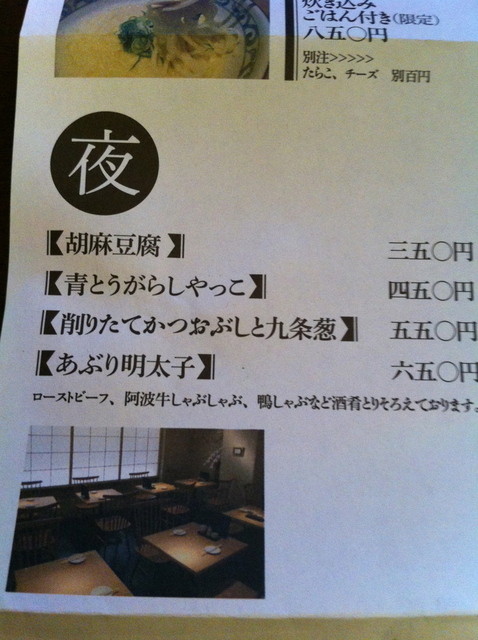 炊き込み
ごはん付き(限定)
八五〇円
別注>>>>>
たらこ、チーズ 別百円
夜
【胡麻豆腐】 三五〇円
【青とうがらしやっこ】 四五〇円
【削りたてかつおぶしと九条葱】 五五〇円
【あぶり明太子】 六五〇円
ローストビーフ、阿波牛しゃぶしゃぶ、鴨しゃぶなど酒肴とりそろえております。